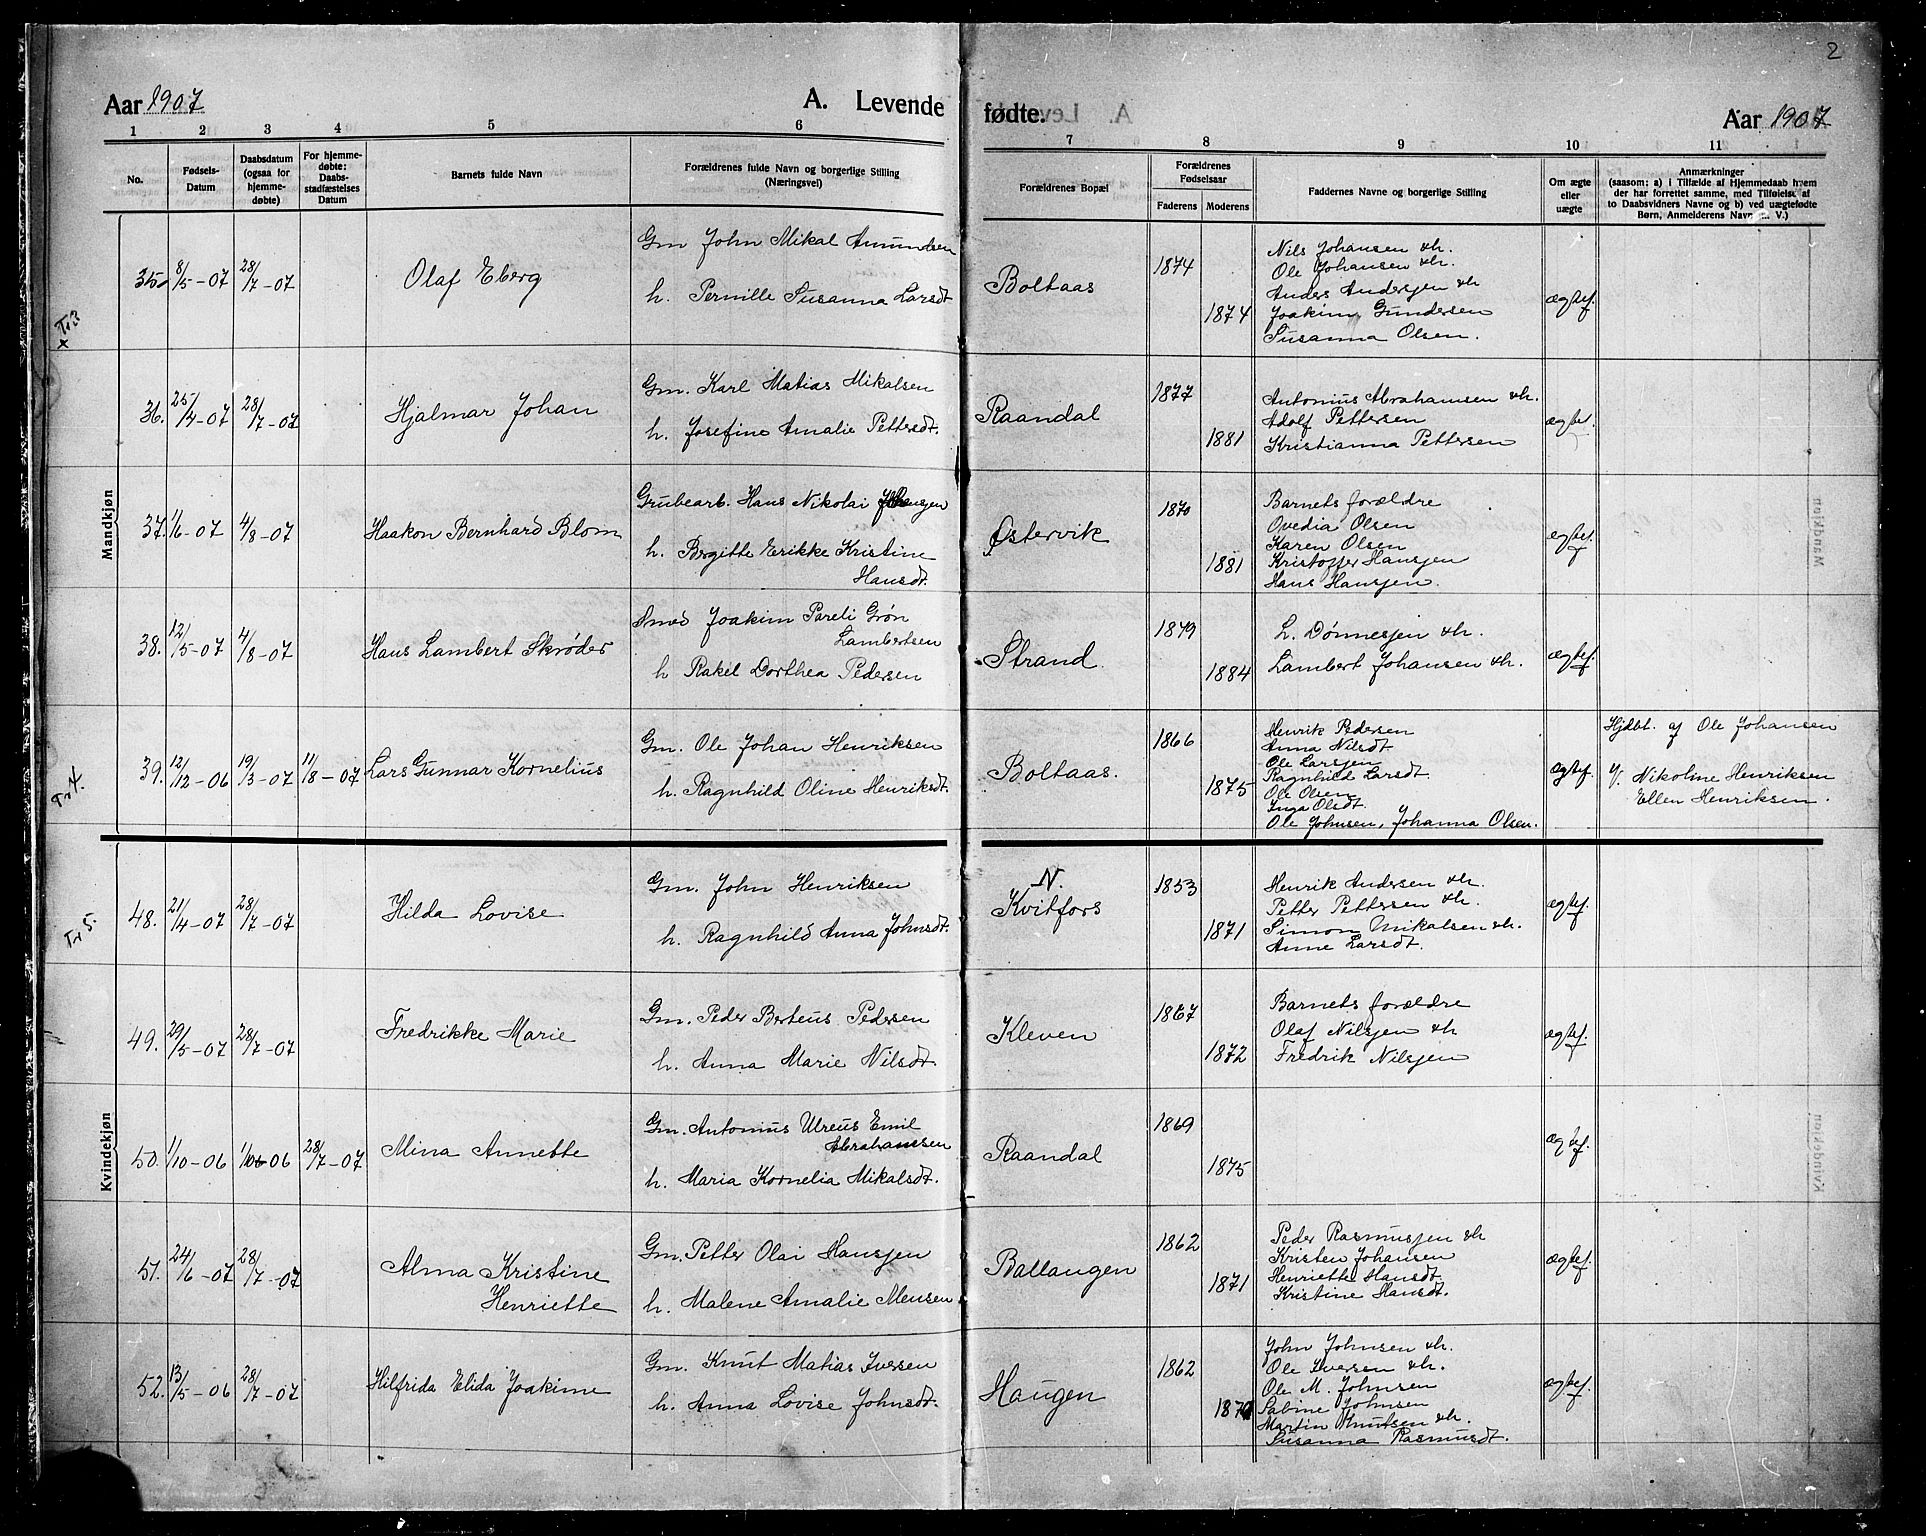 2
Aar 1907 A. Levende fødte. Aar 1907
1 2 3 4 5 6 7 8 9 10 11
No.
Fødsels-
Datum
Daabsdatum
(ogsaa for
hjemme-
døbte)
For hjemme-
døbte:
Daabs-
stadfæstelses
Datum
Barnets fulde Navn
Forældrenes fulde Navn og borgerlige Stilling
(Næringsvei)
Forældrenes Bopæl
Forældrenes
Fødselsaar
Faderens Moderens
Faddernes Navne og borgerlige Stilling
Om ægte
eller
uægte
Anmærkninger
(saasom: a) i Tilfælde af Hjemmedaab hvem
der har forrettet samme, med Tilføielse af
to Daabsvidners Navne og b) ved uægtefødte
Børn, Anmelderens Navn m. V.)
Mandkjøn
Tr 3
x
35. 8/5-07 28/7-07 Olaf Eberg
Gm John Mikal Amundsen
h. Pernille Susanna Larsdt
Boltaas 1874 1874
Nils Johansen & h.
Ole Johansen & h.
Anders Andersjen & h
Joakim Gundersen
Susanna Olsen.
ægtef.
36. 25/4-07 28/7-07 Hjalmar Johan
Gm. Karl Matias Mikalsen
h. Josefine Amalie Pettersdt.
Raandal 1877 1881
Antonius Abrahamsen & h.
Adolf Pettersen
Kristianna Pettersen
ægtef.
37. 1/6-07 4/8-07 Haakon Bernhard Blom
Grubearb. Hans Nikolai
h. Bergitte Erikke Kristine
Hansdt.
Østervik 1870 1881
Barnets forældre
Ovedia Olsen
Karen Olsen
Kristoffer Hansjen
Hans Hansjen.
ægtef.
38. 12/5-07 4/8-07 Hans Lambert Skrøder
Smed Joakim Pareli Grøn
Lambertsen
h Rakel Dorthea Pedersen
Strand. 1879 1884
L. Dønnesjen & h.
Lambert Johansen & h.
ægtef.
Tr 4.
39. 12/12-06 19/3-07 11/8-07 Lars Gunnar Kornelius
Gm. Ole Johan Henriksen
h. Ragnhild Oline Henriksdt.
Boltaas. 1866 1875
Henrik Pedersen
Anna Nilsdt
Ole Larsjen
Ragnhild Larsdt.
Ole Olsen
Inga Olsdt.
Ole Johnsen, Johanna Olsen.
ægtef.
Hjdbt. af Ole Johansen
v. Nikoline Henriksen
Ellen Henriksen.
Kvindekjøn
Tr 5.
48. 21/4-07 28/7-07 Hilda Lovise
Gm. John Henriksen
h. Ragnhild Anna Johnsdt.
N.
Kvitfors 1853 1871
Henrik Andersen & h.
Petter Pettersen & h.
Simon Mikalsen & h.
Anne Larsdt.
ægtef.
49. 29/5-07 28/7-07 Fredrikke Marie
Gm. Peder Berteus Pedersen
h. Anna Marie Nilsdt.
Kleven 1867 1872
Barnets forældre
Olaf Nilsjen & h
Fredrik Nilsjen
ægtef.
50. 1/10-06 1/10-06 28/7-07 Mina Annette
Gm. Antonius Ulreus Emil
Abrahamsen
h. Maria Kornelia Mikalsdt.
Raandal 1869 1875
ægtef.
51. 24/6-07 28/7-07 Alma Kristine
Henriette
Gm. Petter Olai Hansjen
h. Malene Amalie Mensen
Ballangen 1862 1871
Peder Rasmusjen & h
Kristen Johansen
Henriette Hansdt.
Kristine Hansdt.
ægtef.
52. 13/5-06 28/7-07 Hilfrida Elida Joakime
Gm. Knut Matias Iversen
h. Anna Lovise Johnsdt.
Haugen 1862
John Johnsen & h.
Ole Iversen & h.
Ole M. Johnsen
Sabine Johnsen
Martin Knutsen & h.
Susanna Rasmusdt.
ægtef.